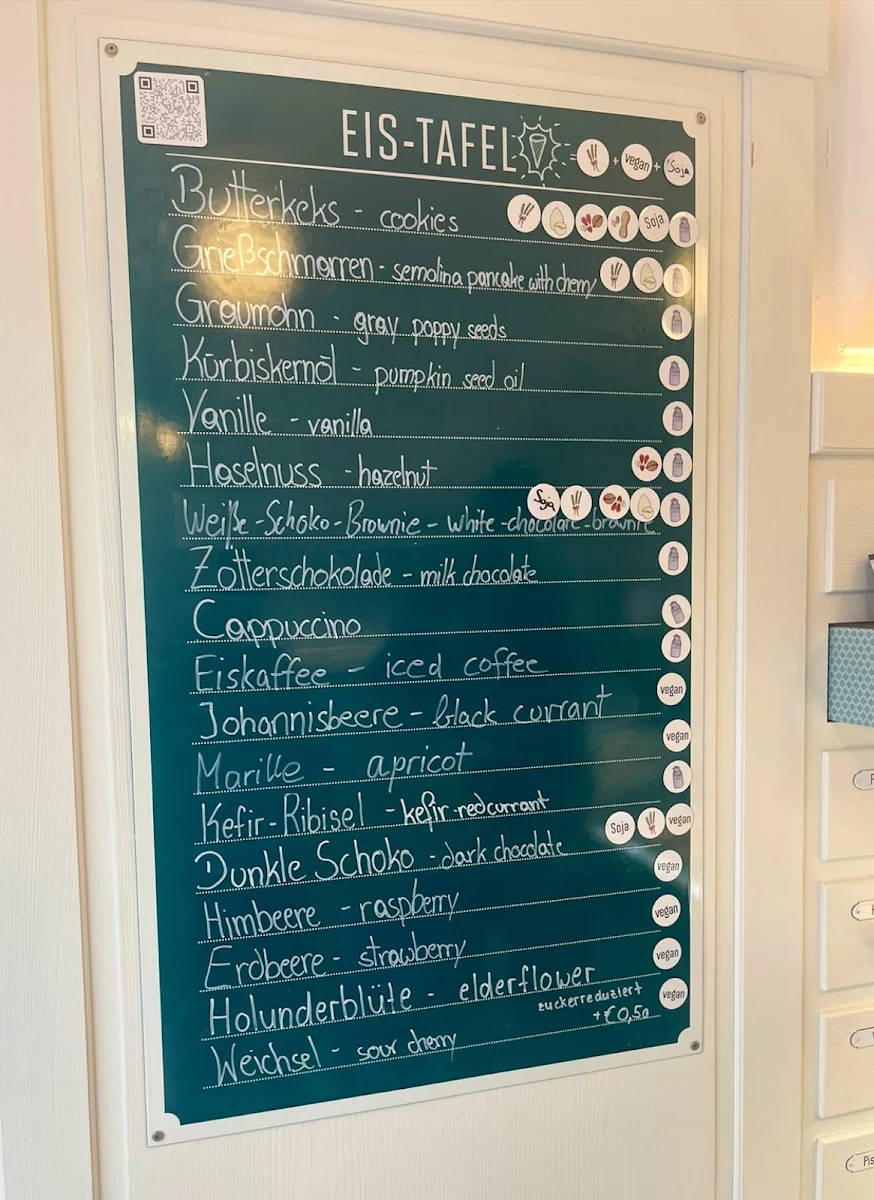 EIS-TAFEL = + vegan + Soja
Butterkeks - cookies Soja
Grießschmarren - semolina pancake with cherry
Graumohn - gray poppy seeds
Kürbiskernöl - pumpkin seed oil
Vanille - vanilla
Haselnuss - hazelnut
Soja
Weiße-Schoko-Brownie - white-chocolate-brownie
Zotterschokolade - milk chocolate
Cappuccino
Eiskaffee - iced coffee
vegan
Johannisbeere - black currant
vegan
Marille - apricot
Kefir-Ribisel - kefir-redcurrant
Soja vegan
Dunkle Schoko - dark chocolate
vegan
Himbeere - raspberry
vegan
Erdbeere - strawberry
vegan
Holunderblüte - elderflower
vegan
zuckerreduziert
+€0,50
Weichsel - sour cherry